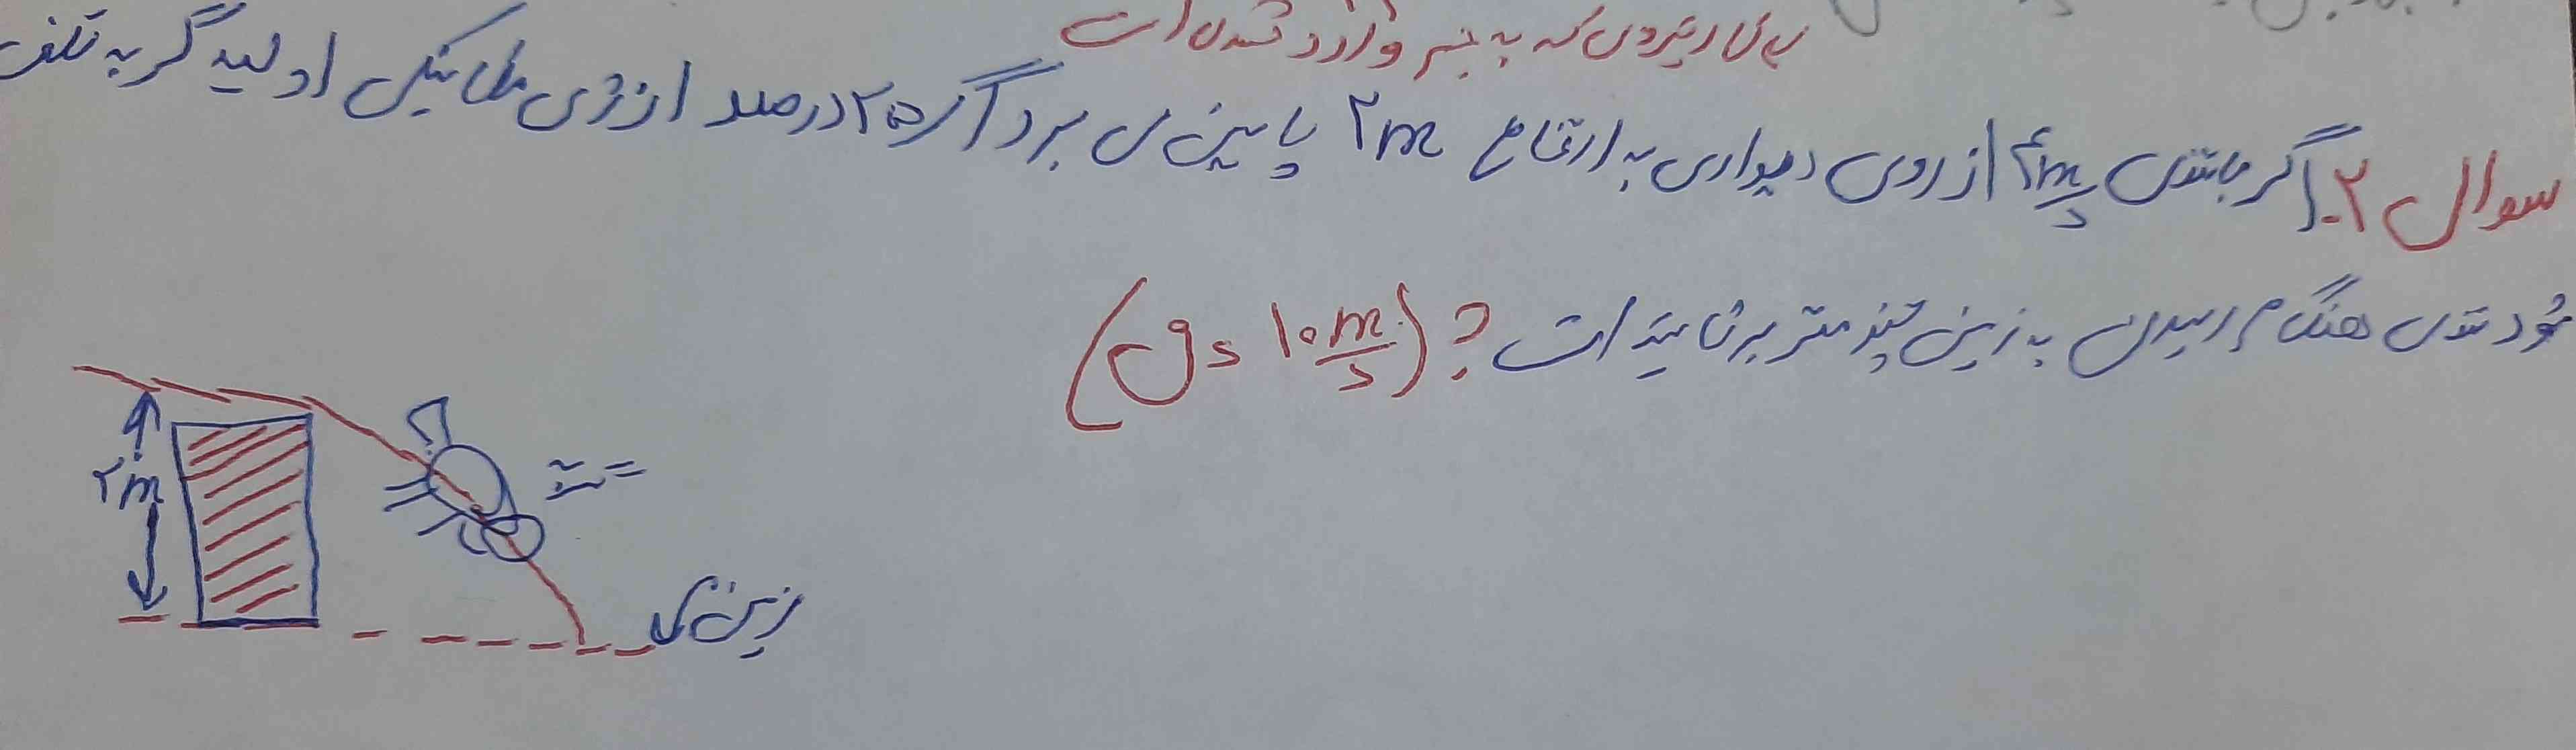 نیرویی که به جسم وارد شده است
سوال ۳. گربه با تندی ۴m/s از روی دیواری به ارتفاع ۲m پایین می پرد اگر ۲۵ درصد انرژی مکانیکی اولیه گربه تلف
شود تندی هنگام رسیدن به زمین چند متر بر ثانیه است؟ (g = ۱۰ m/s)
۲m
زمین